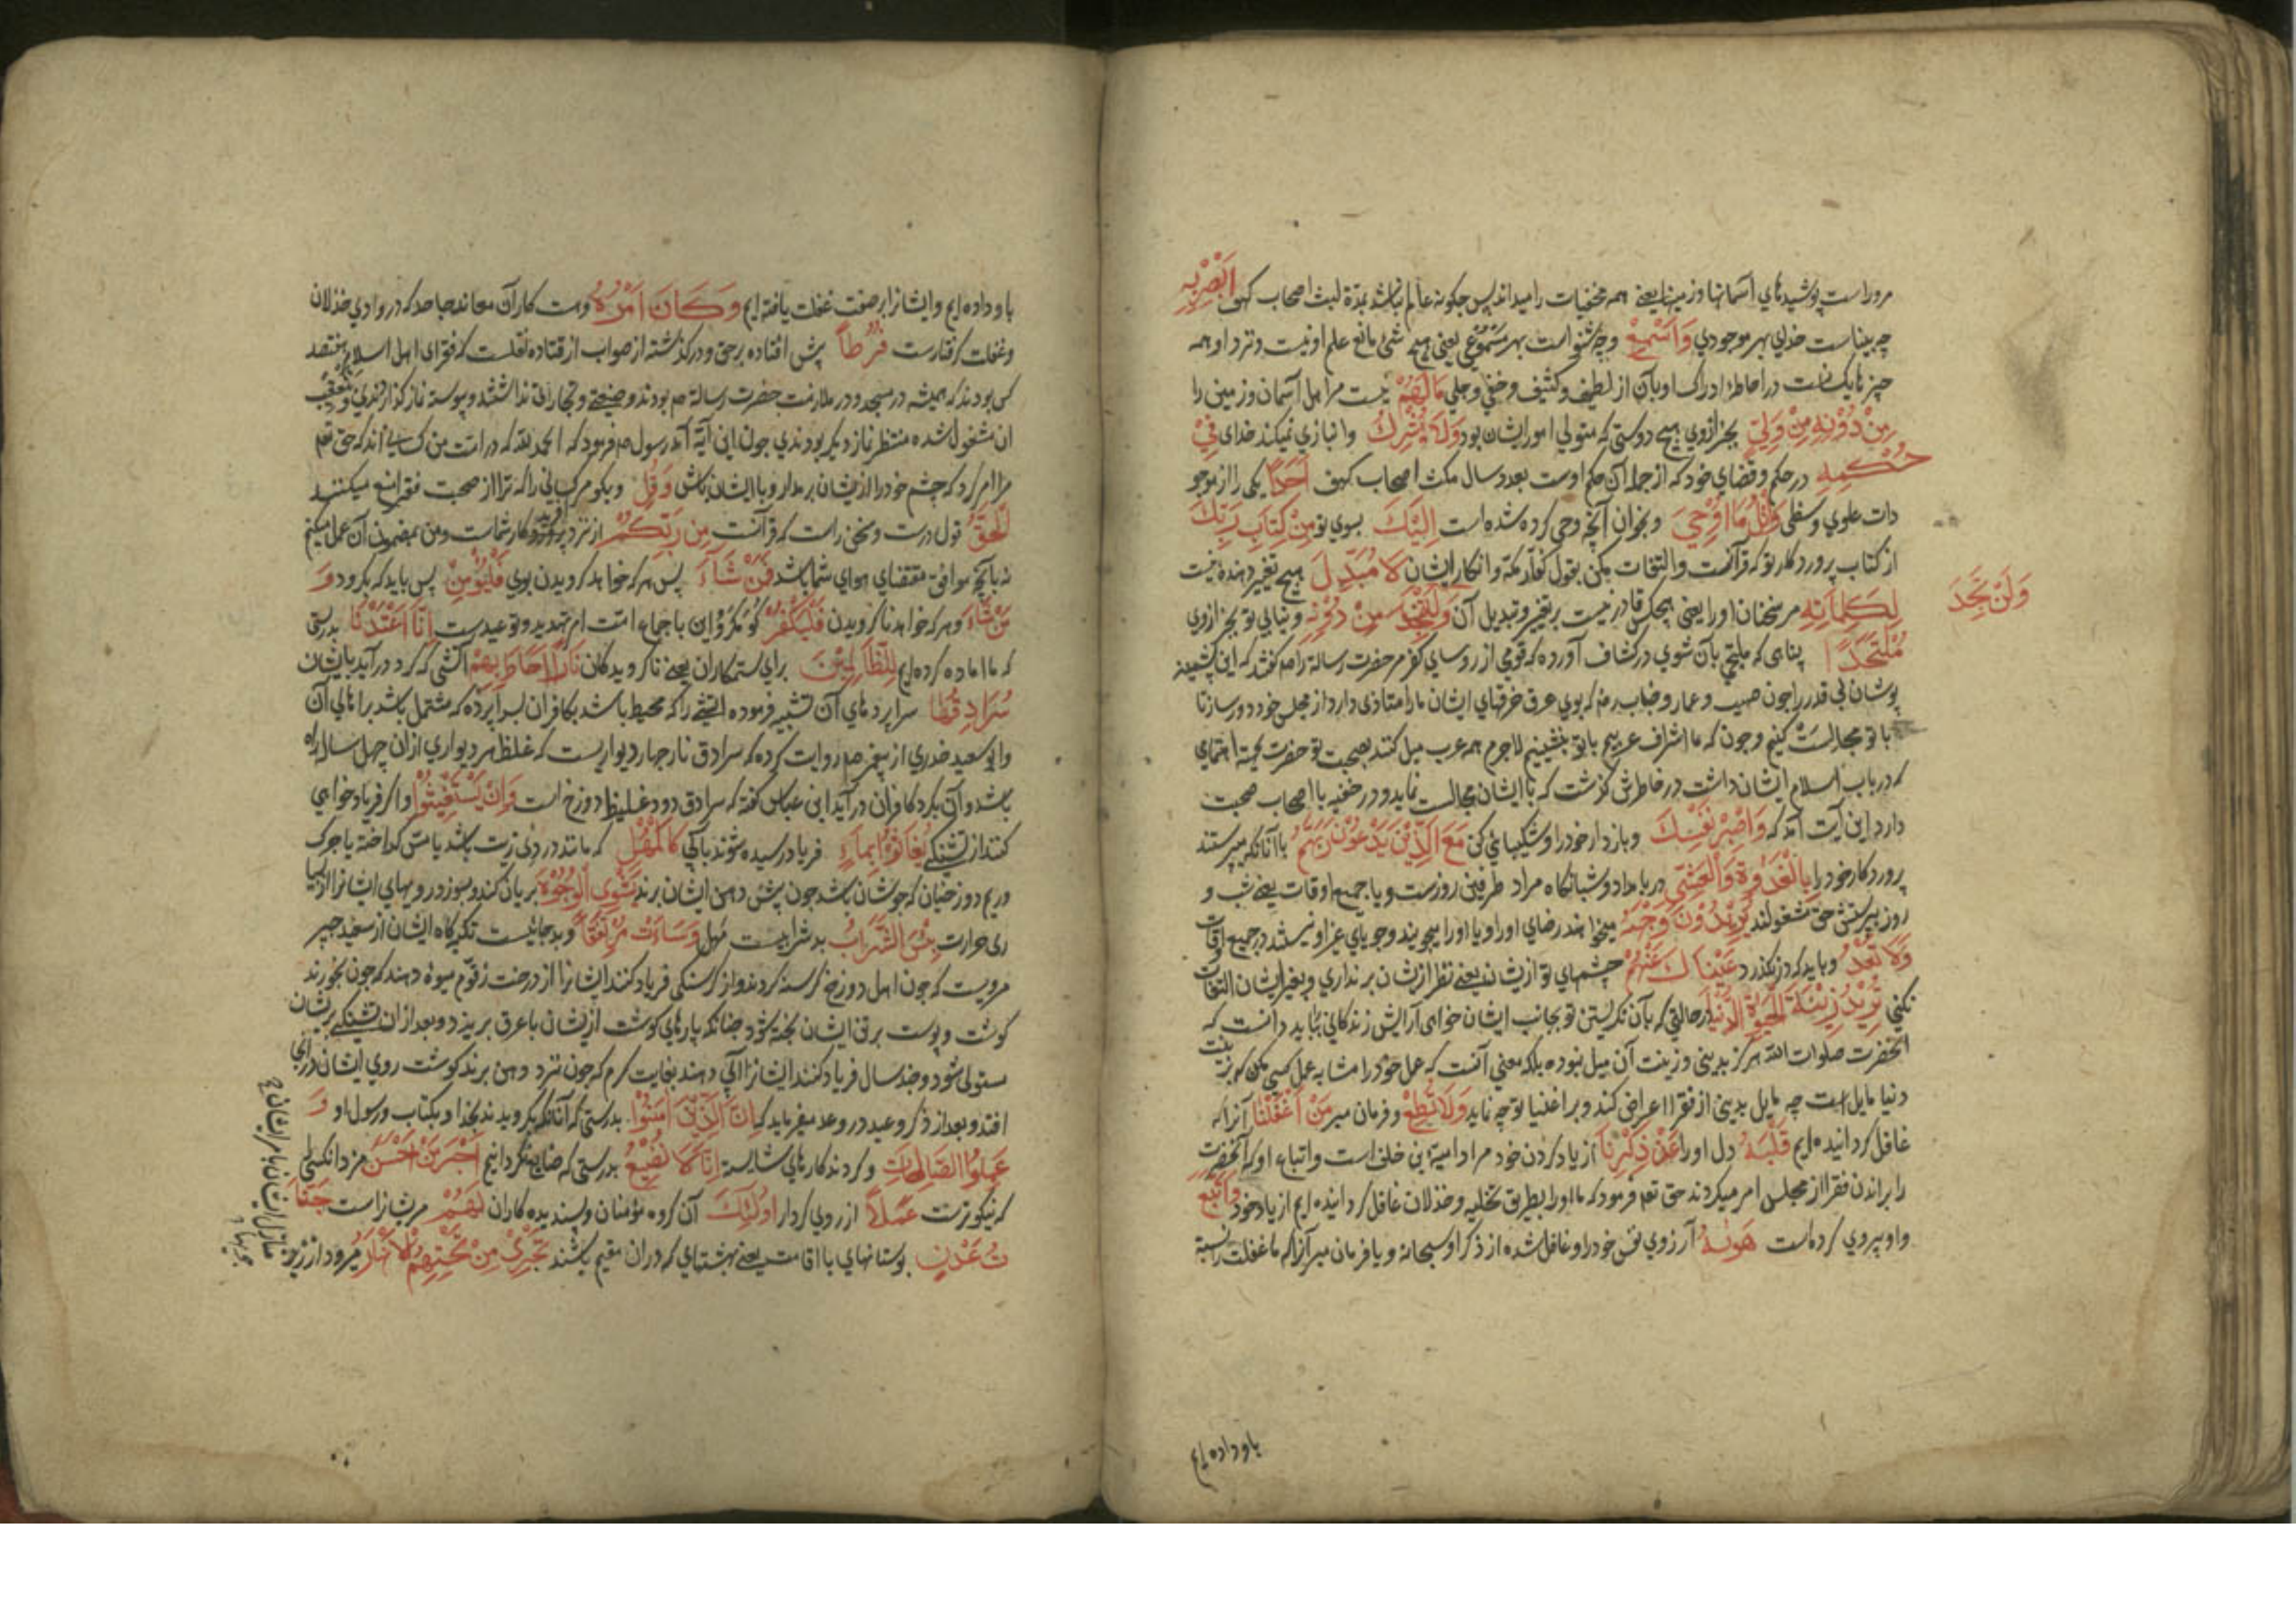 مروراست پوشیدهای آسمانها و زمینها یعنی همه مخفیات را میداند پس چکونه عالم نباشد بمدة لبث اصحاب کهف اَبْصِرْ بِهِ
چه بیناست خدای بهر موجودی وَاَسْمِعْ و چه شنواست بهر مسموعی یعنی هیچ شئ مانع علم او نیست و نزد او همه
چیزها یکسانست در احاطهٔ ادراک او بآن از لطیف و کثیف و خفی و جلی مَالَهُمْ نیست مر اهل آسمان و زمین را
مِنْ دُوْنِهِ مِنْ وَلِیٍّ بجز از وی هیچ دوستی که متولی امور ایشان بود وَلَا یُشْرِكُ و انبازی نمیکند خدای فِیْ
حُکْمِهِ در حکم و قضای خود که از جمله آن حکم اوست بعدد سال مکث اصحاب کهف اَحَدًا یکی را از موجو
دات علوی و سفلی وَاتْلُ مَا اُوْحِیَ و بخوان آنچه وحی کرده شده است اِلَیْكَ بسوی تو مِنْ کِتَابِ رَبِّكَ
از کتاب پروردکار تو که قرآنست و التفات مکن بقول کفار مکه و انکار ایشان لَا مُبَدِّلَ هیچ تغییر دهنده نیست
لِکَلِمَاتِهِ مر سخنان او را یعنی هیچکس قادر نیست بر تغیر و تبدیل آن وَلَنْ تَجِدَ مِنْ دُوْنِهِ و نیابی تو بجز از وی
وَلَنْ تَجِدَ
مُلْتَحَدًا پناهی که ملتجی بآن شوی در کشاف آورده که قومی از روسای کفر مر حضرت رسالة را صم کفتند که این پشمینه
پوشان بی قدر را چون صهیب و عمار و خباب رضه که بوی عرق خرقهای ایشان ما را متاذی دارد از مجلس خود دور ساز تا
با تو مجالست کنیم و چون که ما اشراف عربیم با تو بنشینیم لاجرم همه عرب میل کنند بصحبت تو حضرت بجهة اهتمامی
که در باب اسلام ایشان داشت در خاطرش گذشت که با ایشان مجالست نماید و در خفیه با اصحاب صحبت
دارد این آیت آمد که وَاصْبِرْ نَفْسَكَ و بازدار خود را و شکیبائی کن مَعَ الَّذِیْنَ یَدْعُوْنَ رَبَّهُمْ با آنانکه میپرستند
پروردکار خود را بِالْغَدٰوةِ وَالْعَشِیِّ در بامداد و شبانکاه مراد طرفین روزست و یا جمیع اوقات یعنی شب و
روز بپرستش حق مشغولند یُرِیْدُوْنَ وَجْهَهُ میخواهند رضای او را و یا او را میجویند و جویای غیر او نیستند در جمیع اوقات
وَلَا تَعْدُ و باید که در نکذرد عَیْنَاكَ عَنْهُمْ چشمهای تو از یشان یعنی نظر از یشان برنداری و بغیر ایشان التفات
نکنی تُرِیْدُ زِیْنَةَ الْحَیٰوةِ الدُّنْیَا در حالتی که بآن نکریستن تو بجانب ایشان خواهی آرایش زندکانی بباید دانست که
آنحضرت صلوات الله هرکز بدینی و زینت آن میل نبوده بلکه معنی آنست که عمل خود را مشابه عمل کسی مکن که بزینت
دنیا مایل است چه مایل بدینی از فقرا اعراض کند و بر اغنیا توجه نماید وَلَا تُطِعْ و فرمان میر مَنْ اَغْفَلْنَا آنرا که
غافل کردانیده ایم قَلْبَهُ دل او را عَنْ ذِکْرِنَا از یاد کردن خود مراد امیة بن خلف است و اتباع او که آنحضرت
را براندن فقرا از مجلس امر میکردند حق تعم فرمود که ما او را بطریق تخلیه و خذلان غافل کردانیده ایم از یاد خود وَاتَّبَعَ
و او پیروی کرده است هَوٰیهُ آرزوی نفس خود را و غافل شده از ذکر او سبحانه و یا فرمان میر آنرا که ما غفلت را نسبة
باو داده ایم
باو داده ایم و ایشانرا بر صفت غفلت یافته ایم وَكَانَ اَمْرُهُ وهست کار آن معاند جاحد که در وادی خذلان
و غفلت کرفتارست فُرُطًا پیش افتاده بر حق و درکذشته از صواب از قتاده نقلست که فقرای اهل اسلام هفتصد
کس بودند که همیشه در مسجد و در ملازمت حضرت رسالة صم بودند و ضیعتی و تجارتی نداشتند و پیوسته نماز کذارندی و بتعقیب
ان مشغول شده منتظر نماز دیکر بودندی چون این آیة آمد رسول صم فرمود که الحمد لله که در امت من کسانی اند که حق تعم
مرا امر کرد که چشم خود را از یشان برمدار و با ایشان باش وَقُلِ و بکو مر کسانی را که ترا از صحبت فقرا منع میکنند
الْحَقُّ قول درست و سخن راست که قرآنست مِنْ رَبِّکُمْ از نزد پروردکار شماست و من بمضمون آن عمل میکنم
نه بآنچه موافق مقتضای هوای شما باشد فَمَنْ شَآءَ پس هر که خواهد کرویدن بوی فَلْیُؤْمِنْ پس باید که بکرود وَ
مَنْ شَآءَ و هر که خواهد ناکرویدن فَلْیَکْفُرْ کو مکرو این باجماع امت امر تهدید و توعیدست اِنَّا اَعْتَدْنَا بدرستی
که ما اماده کرده ایم لِلظَّالِمِیْنَ برای ستمکاران یعنی ناکرویدکان نَارًا اَحَاطَ بِهِمْ آتشی که کرد در آید بایشان
سُرَادِقُهَا سراپردهای آن تشبیه فرموده آتشی را که محیط باشد بکافران بسراپرده که مشتمل باشد بر اهالی آن
و ابو سعید خدری از پیغمبر صم روایت کرده که سرادق نار چهار دیواریست که غلظ هر دیواری از آن چهل ساله راه
باشد و آن بکرد کافران در آید ابن عباس کفته که سرادق دود غلیظ دوزخ است وَاِنْ یَسْتَغِیْثُوْا و اکر فریاد خواهی
کنند از تشنکی یُغَاثُوْا بِمَاءٍ فریاد رسیده شوند بآبی کَالْمُهْلِ که مانند دردی زیت باشد یا مس کداخته یا چرک
و ریم دوزخیان که جوشان باشد چون پیش دهن ایشان برند یَشْوِی الْوُجُوْهَ بریان کند و بسوزد رویهای ایشانرا از بسیا
ری حرارت بِئْسَ الشَّرَابُ بد شرابیست مهل وَسَاءَتْ مُرْتَفَقًا و بد جائیست تکیه کاه ایشان از سعید جبیر
مرویست که چون اهل دوزخ کرسنه کردند و از کرسنکی فریاد کنند ایشانرا از درخت زقوم میوه دهند که چون بخورند
کوشت و پوست بر تن ایشان پخته شود چنانکه پارهای کوشت از یشان با عرق بریزد و بعد از ان تشنکی بر یشان
مستولی شود و چند سال فریاد کنند ایشانرا آبی دهند بغایت کرم که چون نزد دهن برند کوشت روی ایشان در آن
افتد و بعد از ذکر وعید در وعد میفرماید که اِنَّ الَّذِیْنَ اٰمَنُوْا بدرستی که آنانکه بکرویدند بخدا و بکتاب و رسول او وَ
عَمِلُوا الصَّالِحَاتِ و کردند کارهای شایسته اِنَّا لَا نُضِیْعُ بدرستی که ضایع نکردانیم اَجْرَ مَنْ اَحْسَنَ مزد آنکسی
که نیکوترست عَمَلًا از روی کردار اُولٰئِكَ آن کروه مؤمنان و پسندیده کاران لَهُمْ مر یشانراست جَنَّا
تُ عَدْنٍ بوستانهای با اقامت یعنی بهشتهای که در ان مقیم باشند تَجْرِیْ مِنْ تَحْتِهِمُ الْاَنْهَارُ میرود از زیر